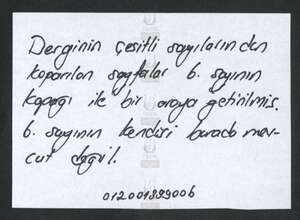 Derginin çeşitli sayılarından
koparılan sayfalar 6. sayının
kapağı ile bir araya getirilmiş.
6. sayının kendisi burada mev-
cut değil.
012001899006